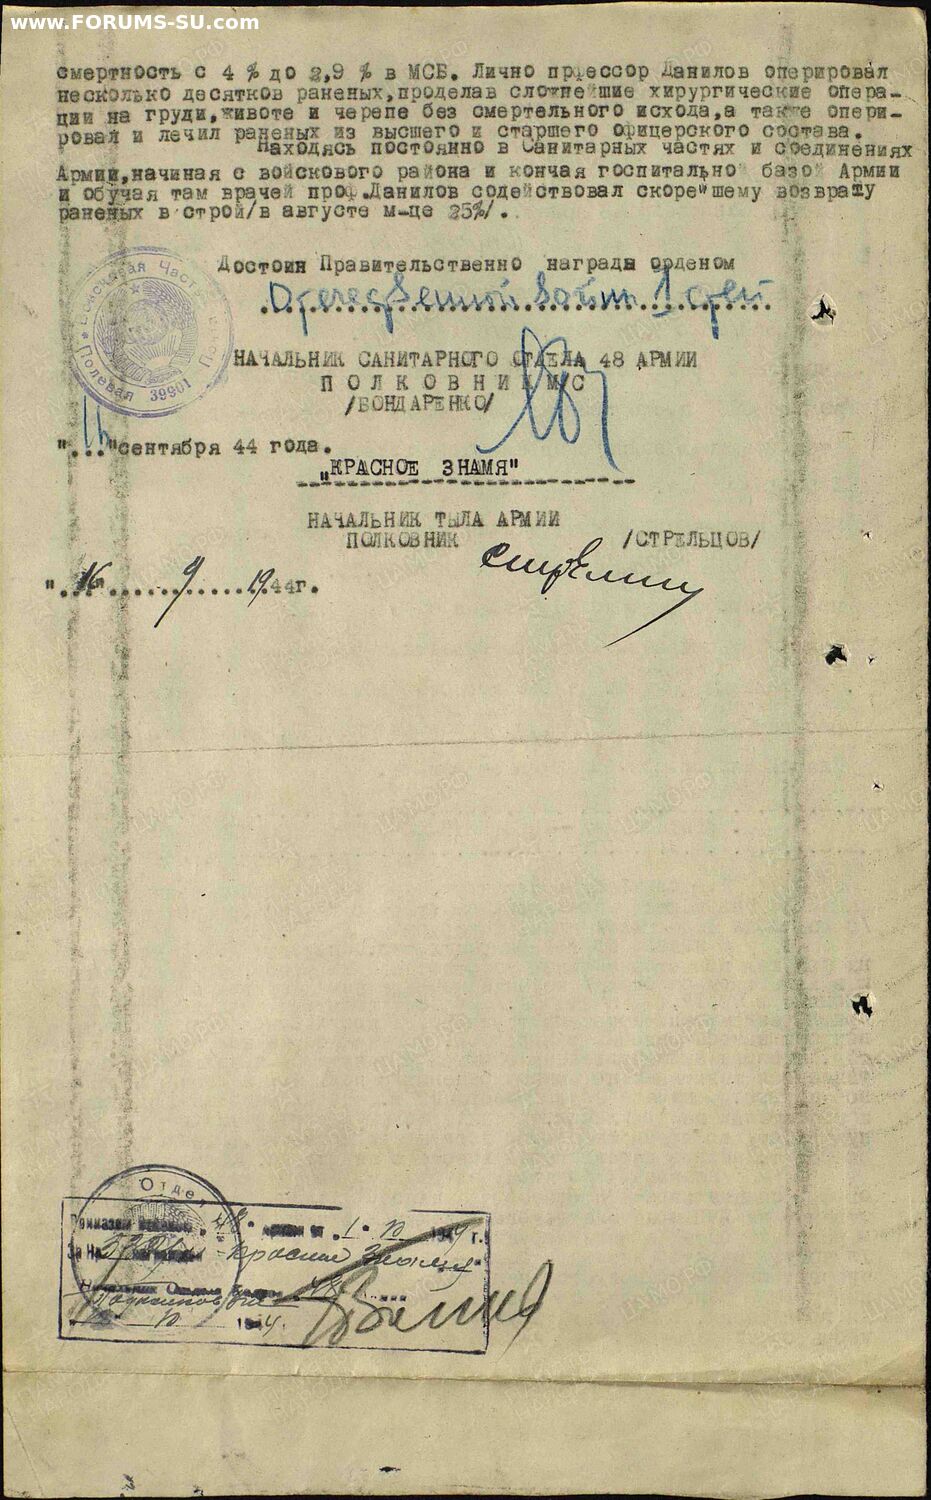 www.FORUMS-SU.com
смертность с 4 % до 2,9 % в МСБ. Лично прфессор Данилов оперировал
несколько десятков раненых,проделав сложнейшие хирургические опера-
ции на груди,животе и черепе без смертельного исхода,а также опери-
ровал и лечил раненых из высшего и старшего офицерского состава.
Находясь постоянно в Санитарных частях и соединениях
Армии,начиная с войскового района и кончая госпитально базой Армии
и обучая там врачей проф.Данилов содействовал скорейшему возврату
раненых в строй/в августе м-це 25%/.
Достоин Правительственно награды орденом
Отечественной войны 1 степ
Войсковая Часть
Полевая 39901
НАЧАЛЬНИК САНИТАРНОГО ОТДЕЛА 48 АРМИИ
ПОЛКОВНИК М/С
/БОНДАРЕНКО/
"..."сентября 44 года.
"КРАСНОЕ ЗНАМЯ"
НАЧАЛЬНИК ТЫЛА АРМИИ
ПОЛКОВНИК /СТРЕЛЬЦОВ/
"16" 9 1944г.
Отдел
Приказом 48 1944 г.
Красное Знамя
48
1944.